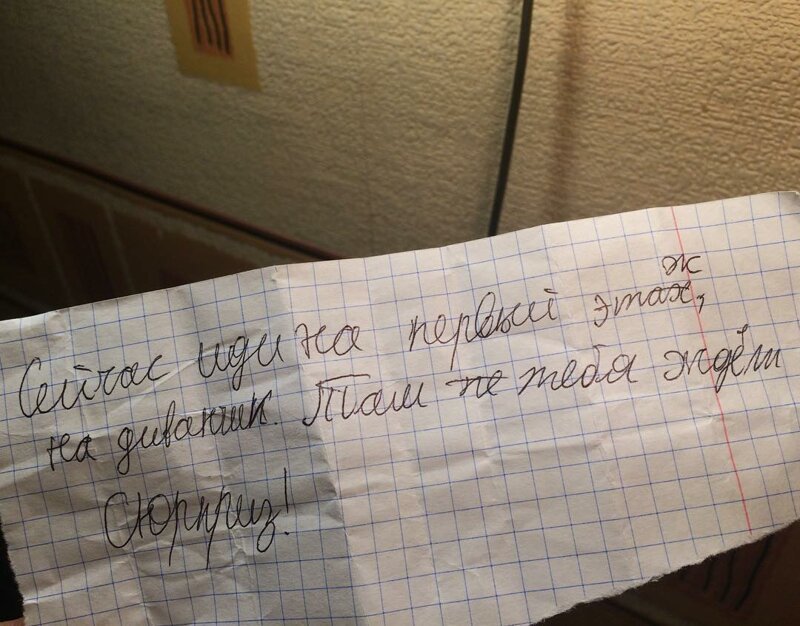 Сейчас иди на первый этаж,
на диванчик. Там не тебя ждёт
Сюрприз!